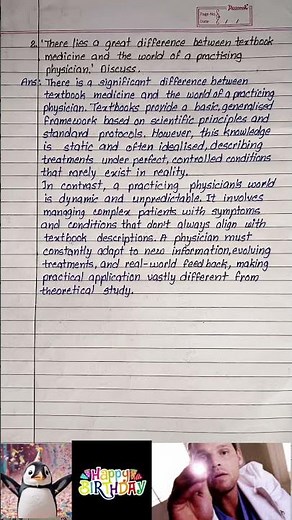 Page No.
Date
8. 'There lies a great difference between textbook
medicine and the world of a practising
physician.' Discuss.
Ans: There is a significant difference between
textbook medicine and the world of a practicing
physician. Textbooks provide a basic, generalised
framework based on scientific principles and
standard protocols. However, this knowledge
is static and often idealised, describing
treatments under perfect, controlled conditions
that rarely exist in reality.
In contrast, a practicing physician's world
is dynamic and unpredictable. It involves
managing complex patients with symptoms
and conditions that don't always align with
textbook descriptions. A physician must
constantly adapt to new information, evolving
treatments, and real-world feedback, making
practical application vastly different from
theoretical study.
HAPPY
BIRTHDAY